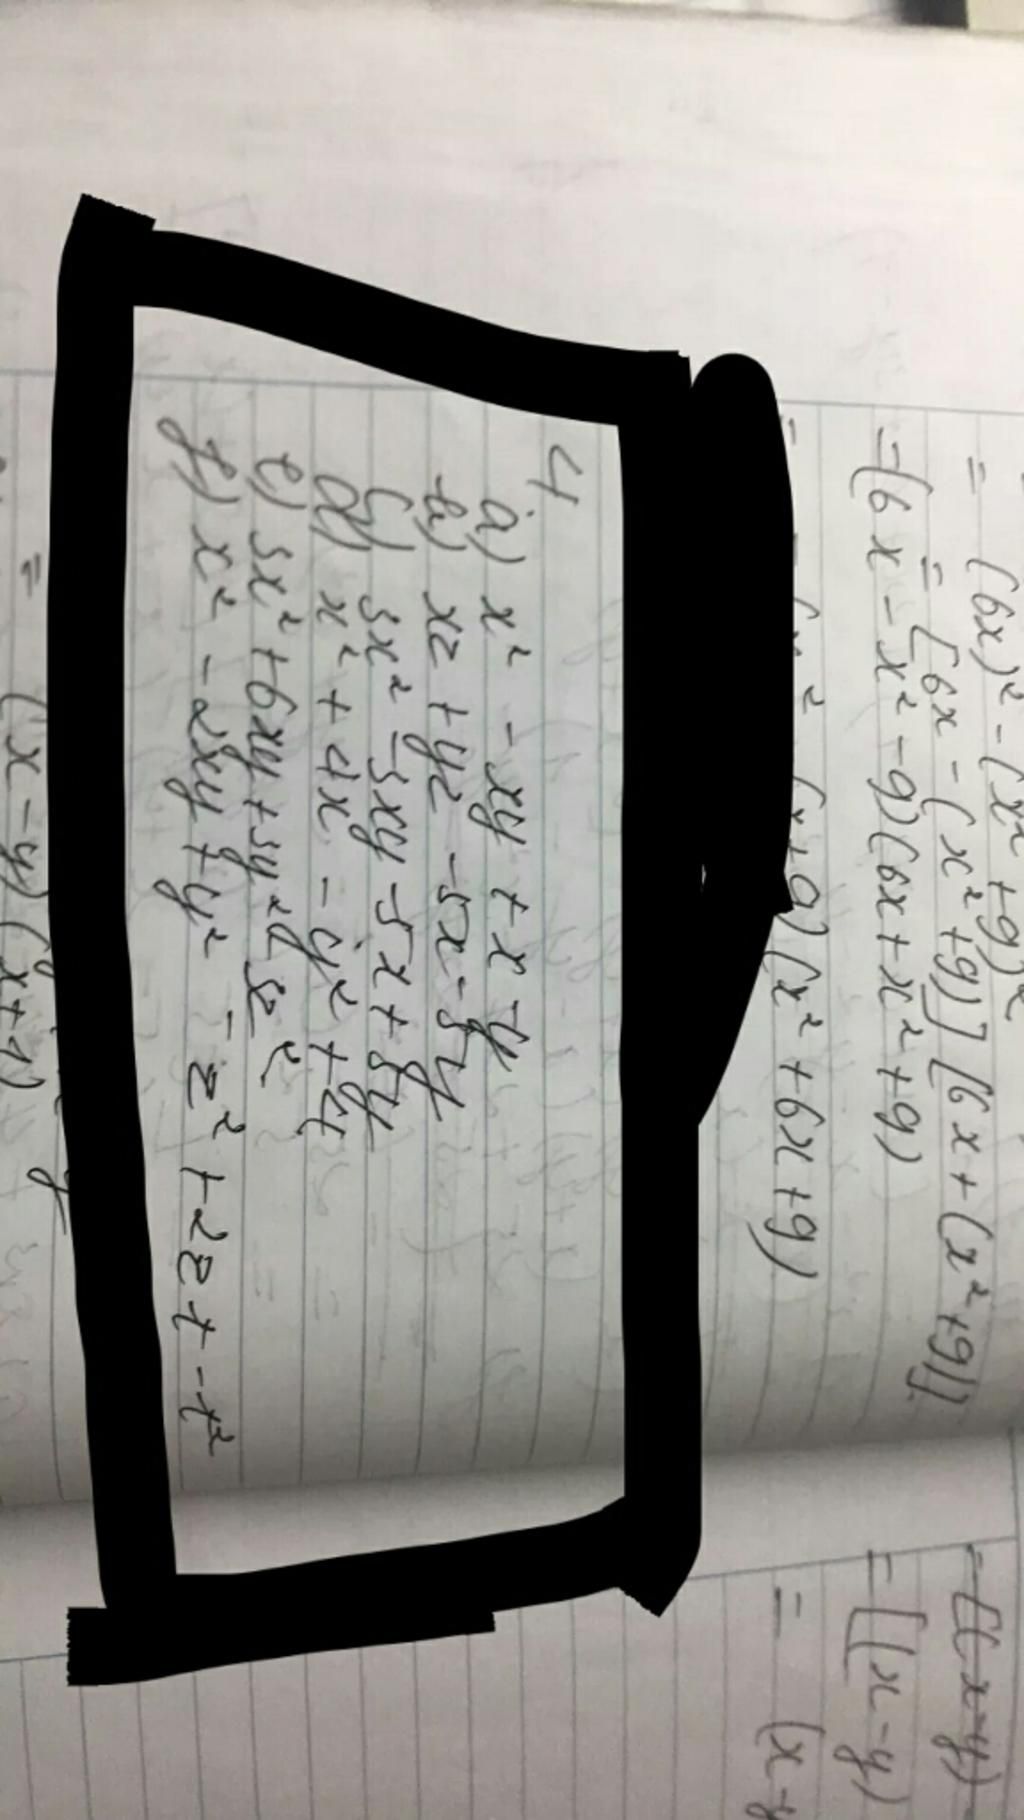 = (6x)² - (x² + 9)²
= [6x - (x² + 9)] [6x + (x² + 9)]
= (6x - x² - 9)(6x + x² + 9)
(x² + 6x + 9)
4
a) x² - xy + x - y
b) xz + yz - 5x - 5y
c) 3x² - 3xy - 5x + 5y
d) x² + 4x - y² + 4
e) 3x² + 6xy + 3y² - 3z²
f) x² - 2xy + y² - z² + 2zt - t²
= (x - y)(x + 1)
= [(x - y)
= [(x - y)
= (x - y